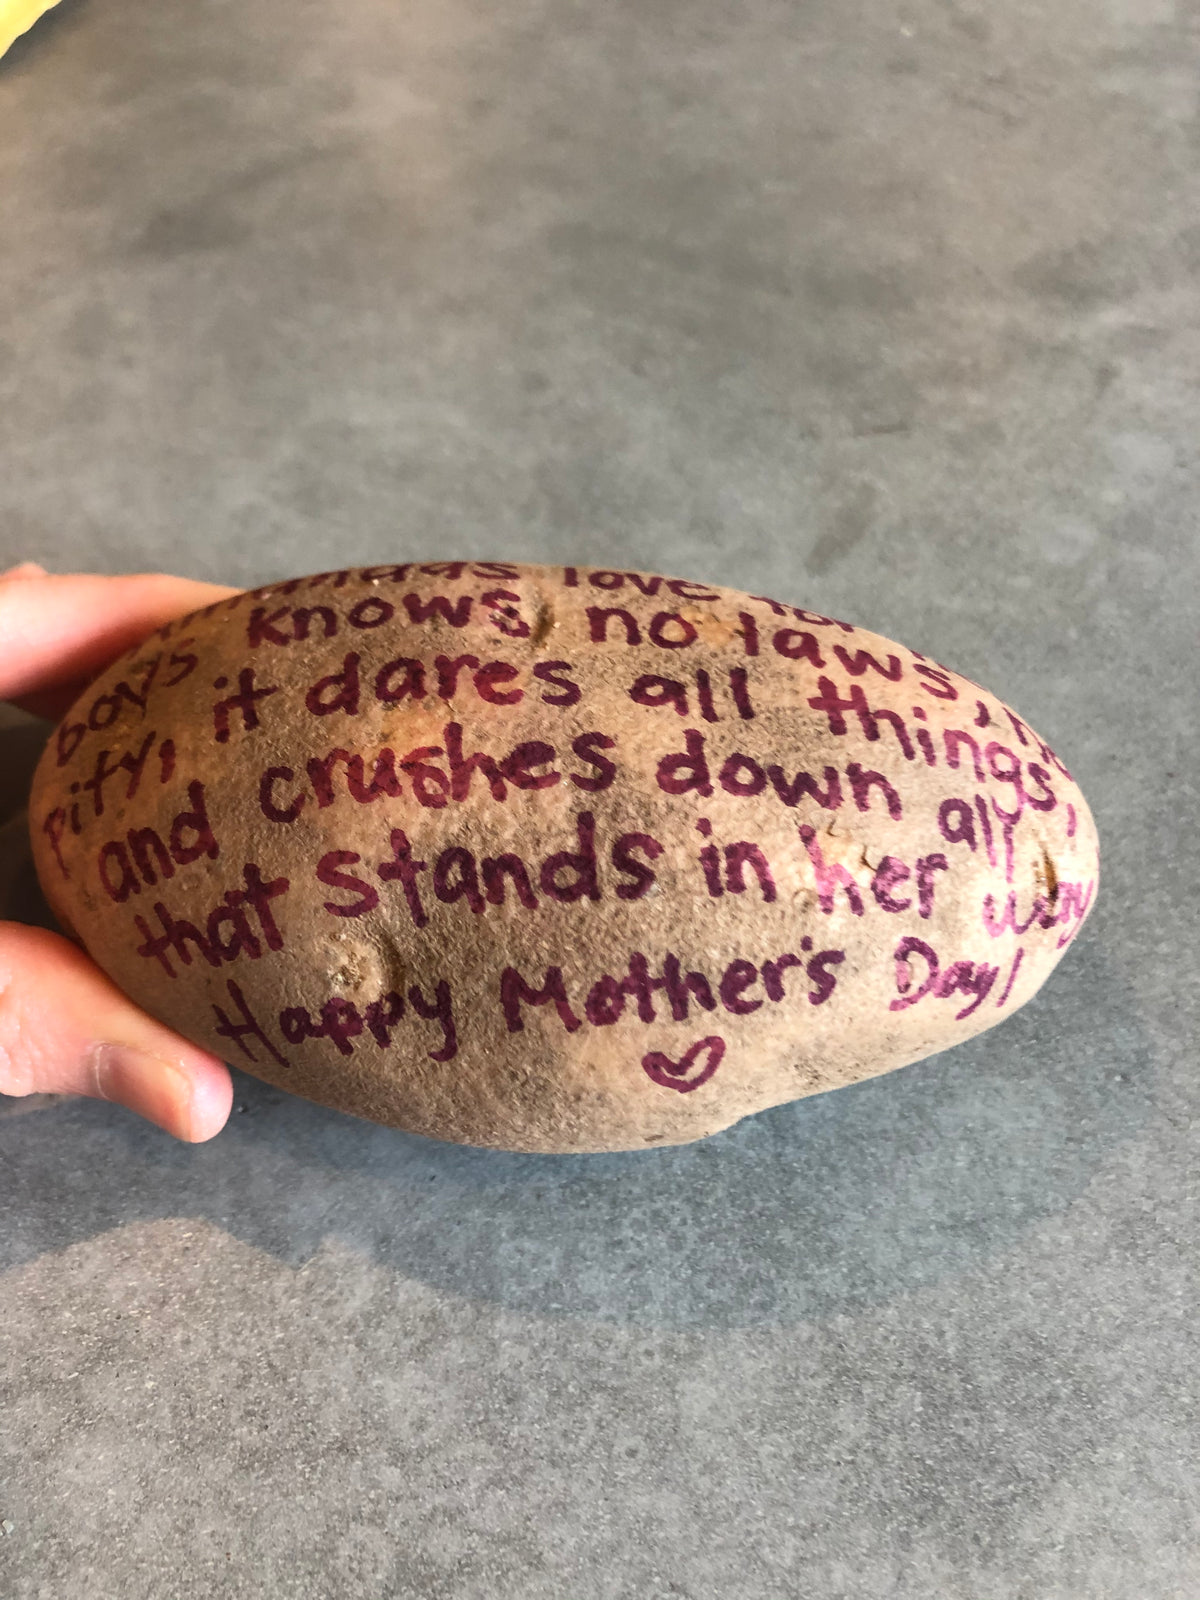 love for
boys knows no laws,
pity, it dares all things,
and crushes down all
that stands in her way
Happy Mother's Day!